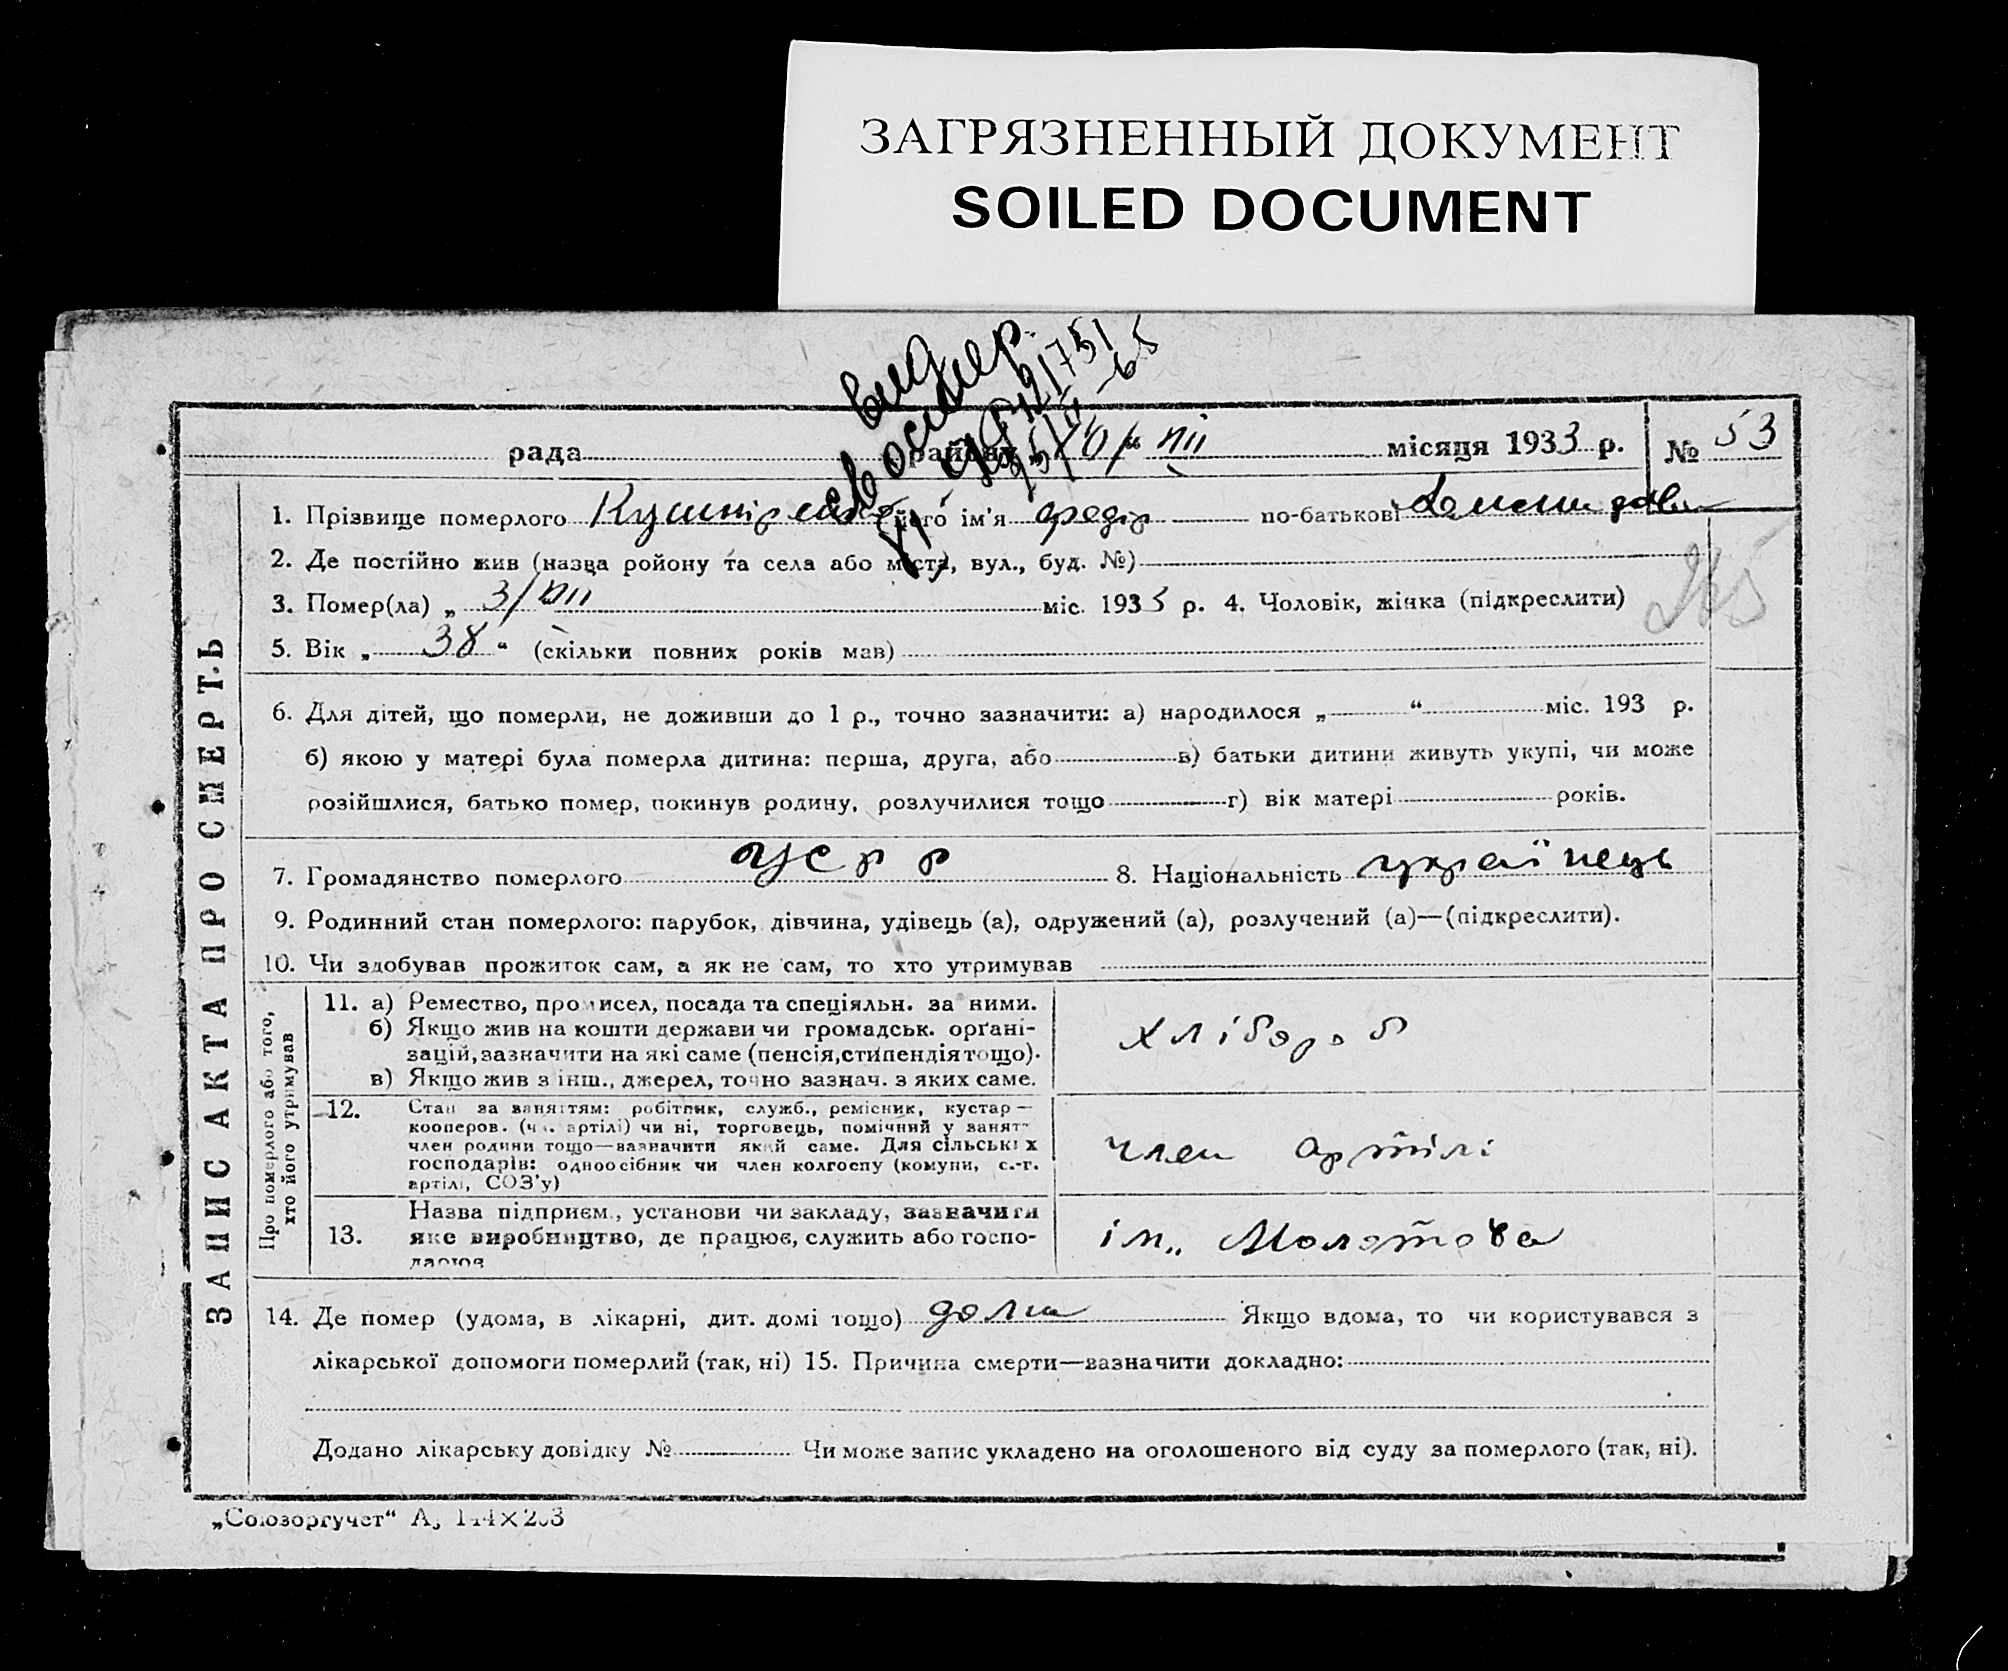 ЗАГРЯЗНЕННЫЙ ДОКУМЕНТ
SOILED DOCUMENT
вид
рада району „10/VIII“ місяця 1933 р. № 53
1. Прізвище померлого його ім'я Федір по-батькові
2. Де постійно жив (назва ройону та села або міста, вул., буд. №)
3. Помер(ла) „ 3/VIII міс. 1933 р. 4. Чоловік, жінка (підкреслити)
5. Вік „ 38 “ (скільки повних років мав)
6. Для дітей, що померли, не доживши до 1 р., точно зазначити: а) народилося „ “ міс. 193 р.
б) якою у матері була померла дитина: перша, друга, або в) батьки дитини живуть укупі, чи може
розійшлися, батько помер, покинув родину, розлучилися тощо г) вік матері років.
7. Громадянство померлого УСРР 8. Національність українець
9. Родинний стан померлого: парубок, дівчина, удівець (а), одружений (а), розлучений (а)—(підкреслити).
10. Чи здобував прожиток сам, а як не сам, то хто утримував
ЗАПИС АКТА ПРО СМЕРТЬ
Про померлого або того,
хто його утримував
11. а) Ремество, промисел, посада та спеціяльн. за ними.
б) Якщо жив на кошти держави чи громадськ. орґані-
зацій, зазначити на які саме (пенсія, стипендія тощо).
в) Якщо жив з інш., джерел, точно зазнач. з яких саме.
хлібороб
12. Стан за заняттям: робітник, служб., ремісник, кустар —
кооперов. (чл. артілі) чи ні, торговець, помічний у занят-
член родини тощо—зазначити який саме. Для сільських
господарів: одноосібник чи член колгоспу (комуни, с.-г.
артілі, СОЗ'у)
член артілі
13. Назва підприєм., установи чи закладу, зазначити
яке виробництво, де працює, служить або госпо-
дарює
ім. Молотова
14. Де помер (удома, в лікарні, дит. домі тощо) дома Якщо вдома, то чи користувався з
лікарської допомоги померлий (так, ні) 15. Причина смерти—зазначити докладно:
Додано лікарську довідку № Чи може запис укладено на оголошеного від суду за померлого (так, ні).
„Союзоргучет“